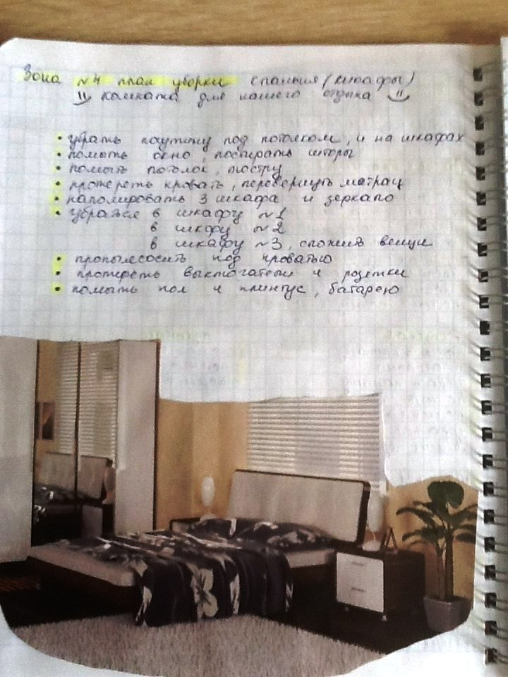 Зона №4 план уборки спальня (шкафы)
комната для нашего отдыха
• убрать паутину под потолком, и на шкафах
• помыть окно, постирать шторы
• помыть потолок, люстру
• протереть кровать, перевернуть матрац
• наполировать 3 шкафа и зеркало
• убраться в шкафу №1
в шкфу №2
в шкафу №3, сложить вещи
• пропылесосить под кроватью
• протереть выключатели и розетки
• помыть пол и плинтус, батарею